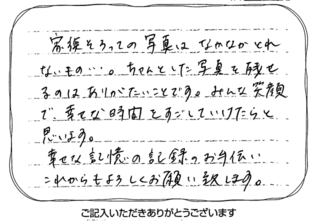 家族そろっての写真は なかなかとれ
ないもの…。ちゃんとした写真を残せ
るのは、ありがたいことです。みんな笑顔
で、幸せな時間をすごしていけたらと
思います。
幸せな記憶の記録のお手伝い
これからもよろしくお願い致します。
ご記入いただきありがとうございます